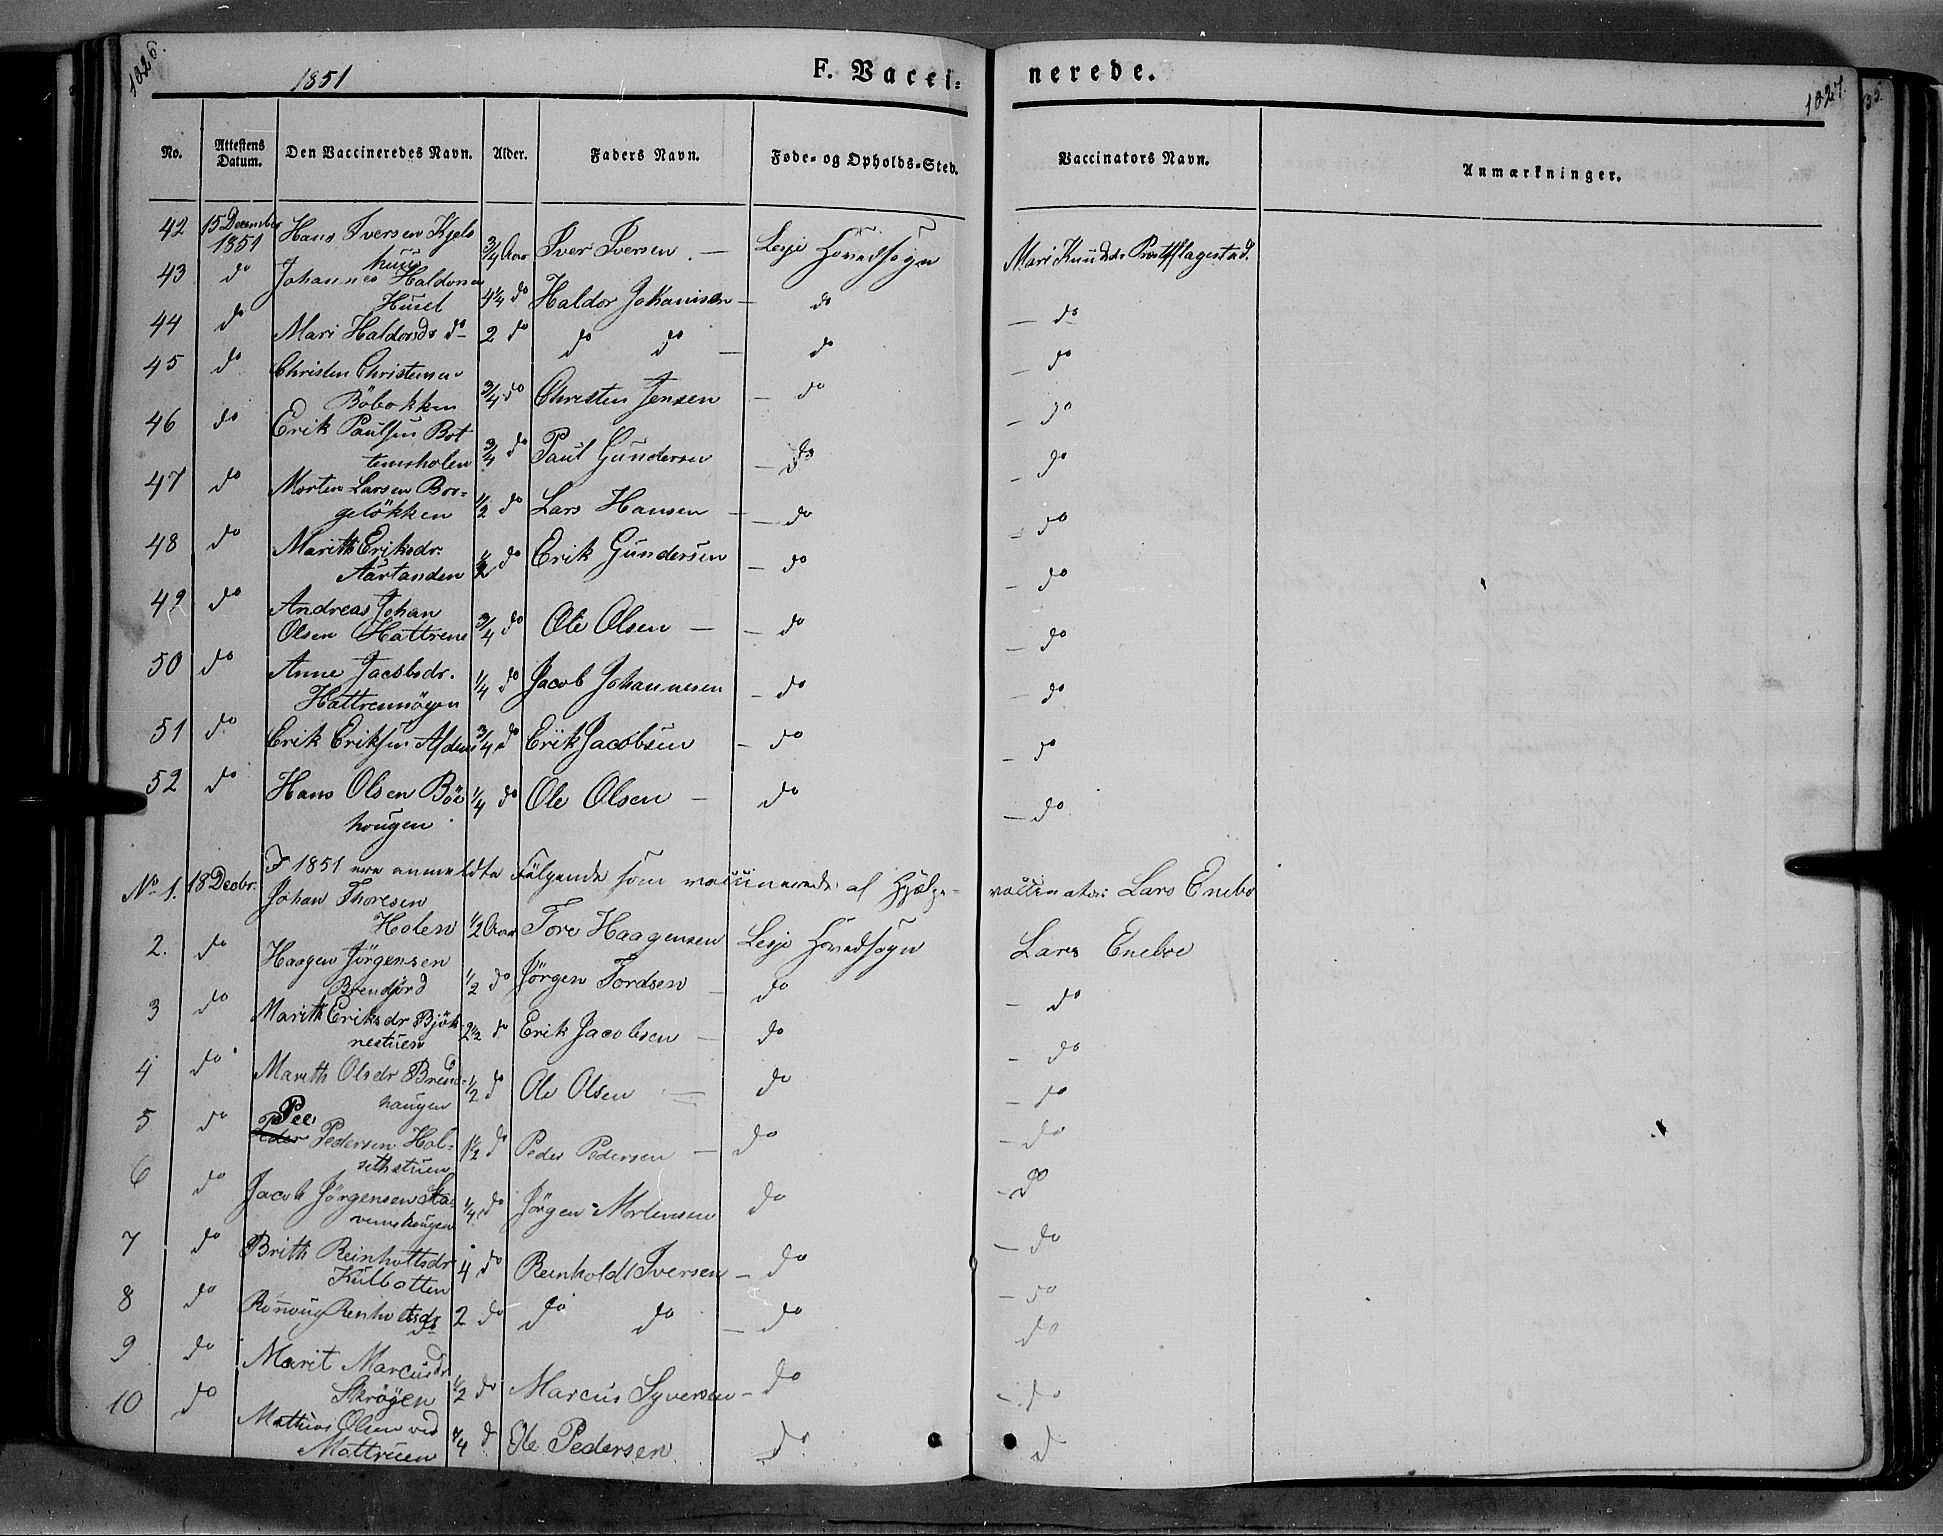 1826.
1851
F. Vacci-
nerede.
1827.
No.
Attestens Datum.
Den Vaccineredes Navn.
Alder.
Faders Navn.
Føde- og Opholds-Sted.
Vaccinators Navn.
Anmærkninger.
42 15 December 1851 Hans Iversen Kjels huus 3/4 Aar Iver Iversen — Lesje Hovedsogn Mari Knudsdr
43 do Johannes Haldorsen Husel 4 1/4 do Haldor Johannisen — do — do
44 do Mari Haldorsdr do 2 do do do — do — do
45 do Christen Christensen Böbakken 3/4 do Christen Jensen — do — do
46 do Erik Paulsen Bottemsholen 3/4 do Paul Gundersen — do — do
47 do Morten Larsen Borgeløkken 1/2 do Lars Hansen — do — do
48 do Marith Eriksdr: Aartanden 1/2 do Erik Gundersen — do — do
49 do Andreas Johan Olsen Hattrem 3/4 do Ole Olsen — do — do
50 do Anne Jacobsdr. Hattremöyen 1/4 do Jacob Johannesen — do — do
51 do Erik Eriksen 3/4 do Erik Jacobsen — do — do
52 do Hans Olsen Böe hougen 1/4 do Ole Olsen — do — do
I 1851 ere anmeldte Følgende som vaccinerede af Hjælpe- vaccinator Lars Enebo
No 1. 18 Decbr. Johan Thoresen Holen 1/2 Aar Tore Haagensen Lesje Hovedsogn Lars Enebo
2. do Haagen Jörgensen Brendjord 1/2 do Jörgen Tordsen — do — do
3 do Marith Eriksdr Bjöknestuen 2 1/2 do Erik Jacobsen — do — do
4 do Marith Olsdr Brend- haugen 1/2 do Ole Olsen — do — do
5 do Pee Peder Pedersen Hol- sethstuen 1 1/2 do Peder Pedersen — do — do
6 do Jacob Jörgensen 1/4 do Jörgen Mortensen do — do
7 do Brith Reinholtsdr Kulbotten 4 do Reinholdt Iversen — do — do
8 do Rönnoug Renholtsdr do 2 do do do — do — do
9 do Marit Marcusdr Skrøyen 1/2 do Marcus Syversen — do do
10 do Mathias Olsen ved Mattruen 3/4 d Ole Pedersen do — do
d